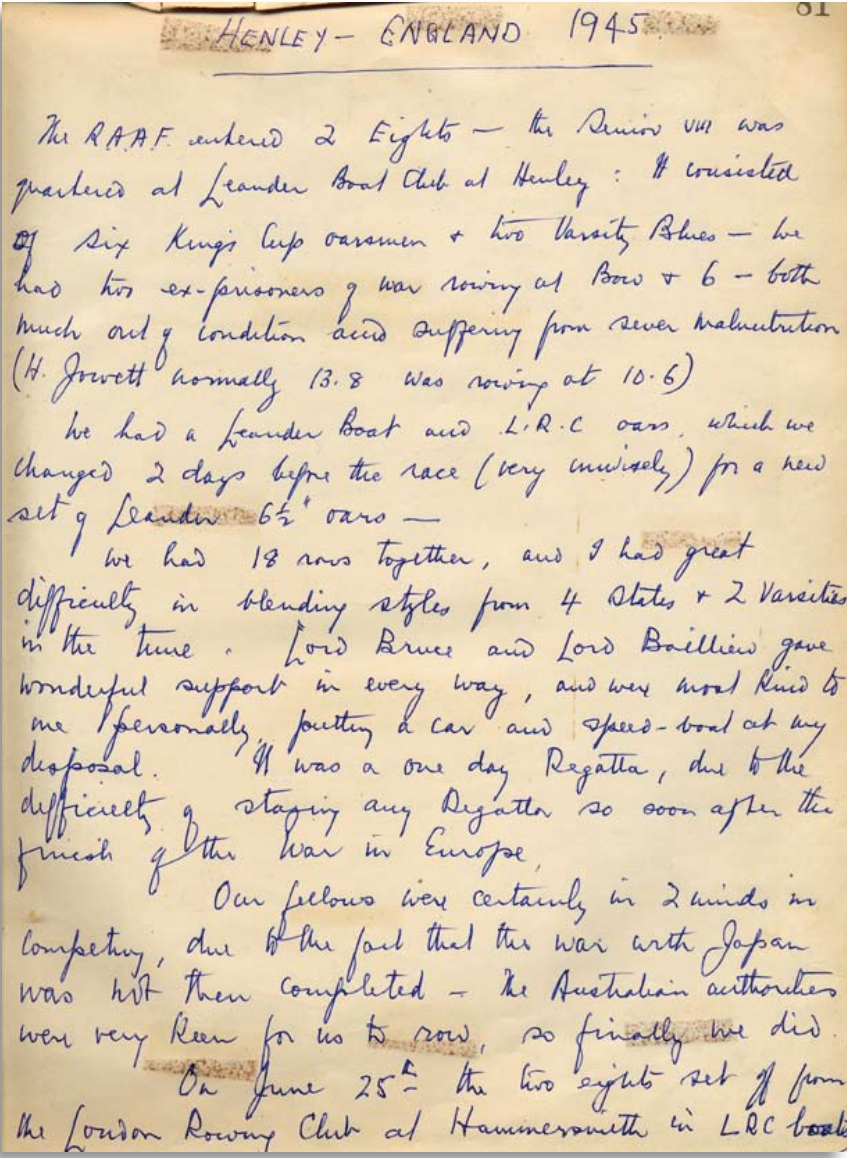 81
HENLEY - ENGLAND 1945.
The R.A.A.F. entered 2 Eights — the Senior VIII was
quartered at Leander Boat Club at Henley : It consisted
of six Kings Cup oarsmen & two Varsity Blues — We
had two ex-prisoners of war rowing at Bow & 6 — both
much out of condition and suffering from sever malnutrition
(H. Jowett normally 13.8 was rowing at 10.6)
We had a Leander Boat and L.R.C oars, which we
changed 2 days before the race (very unwisely) for a new
set of Leander 6½" oars —
We had 18 rows together, and I had great
difficulty in blending styles from 4 States & 2 Varsities
in the time. Lord Bruce and Lord Baillieu gave
wonderful support in every way, and were most kind to
me personally, putting a car and speed-boat at my
disposal. It was a one day Regatta, due to the
difficulty of staging any Regatta so soon after the
finish of the War in Europe,
Our fellows were certainly in 2 minds in
competing, due to the fact that the war with Japan
was not then completed — The Australian authorities
were very keen for us to row, so finally we did.
On June 25th the two eights set off from
the London Rowing Club at Hammersmith in LRC boats